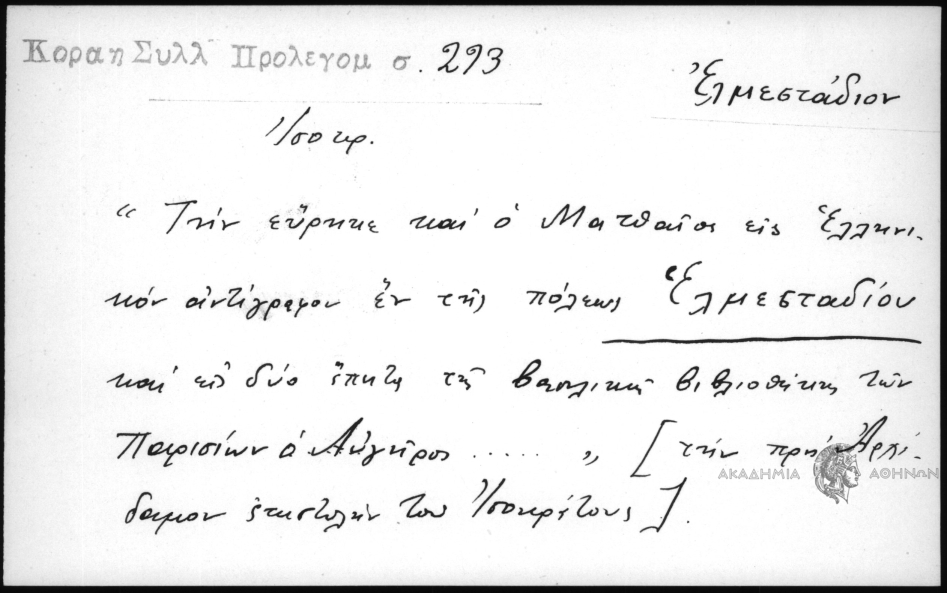 Κοραη Συλλ Προλεγομ σ. 293
Ἑλμεστάδιον
Ἰσοκρ.
“ Τὴν εὕρηκε καὶ ὁ Ματθαῖος εἰς Ἑλληνι-
κὸν ἀντίγραφον ἓν τῆς πόλεως Ἑλμεσταδίου
καὶ εἰς δύο τῆς βασιλικῆς βιβλιοθήκης τῶν
Παρισίων ὁ Αὐγῆρος ..... „ [ τὴν πρὸς Ἀρχί-
δαμον ἐπιστολὴν τοῦ Ἰσοκράτους ].
ΑΚΑΔΗΜΙΑ ΑΘΗΝΩΝ